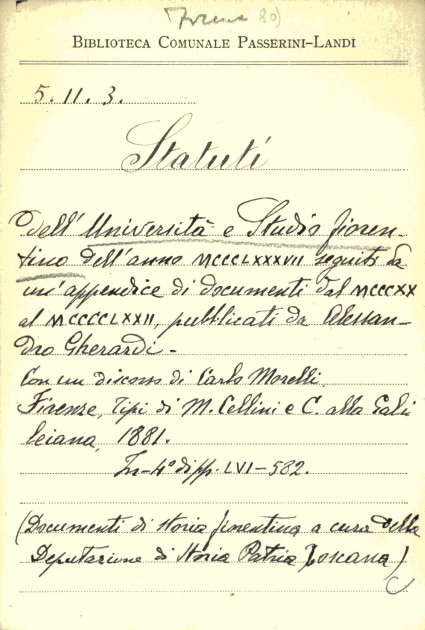 (Firenze 80)
BIBLIOTECA COMUNALE PASSERINI-LANDI
5. 11. 3.
Statuti
dell'Università e Studio fioren-
tino dell'anno MCCCLXXXVII seguiti da
un'appendice di documenti dal MCCCXX
al MCCCCLXXII, pubblicati da Alessan-
dro Gherardi -
Con un discorso di Carlo Morelli.
Firenze, Tipi di M. Cellini e C. alla Gali
leiana, 1881.
In-4º di pp. LVI-582.
(Documenti di storia fiorentina a cura della
Deputazione di Storia Patria Toscana)